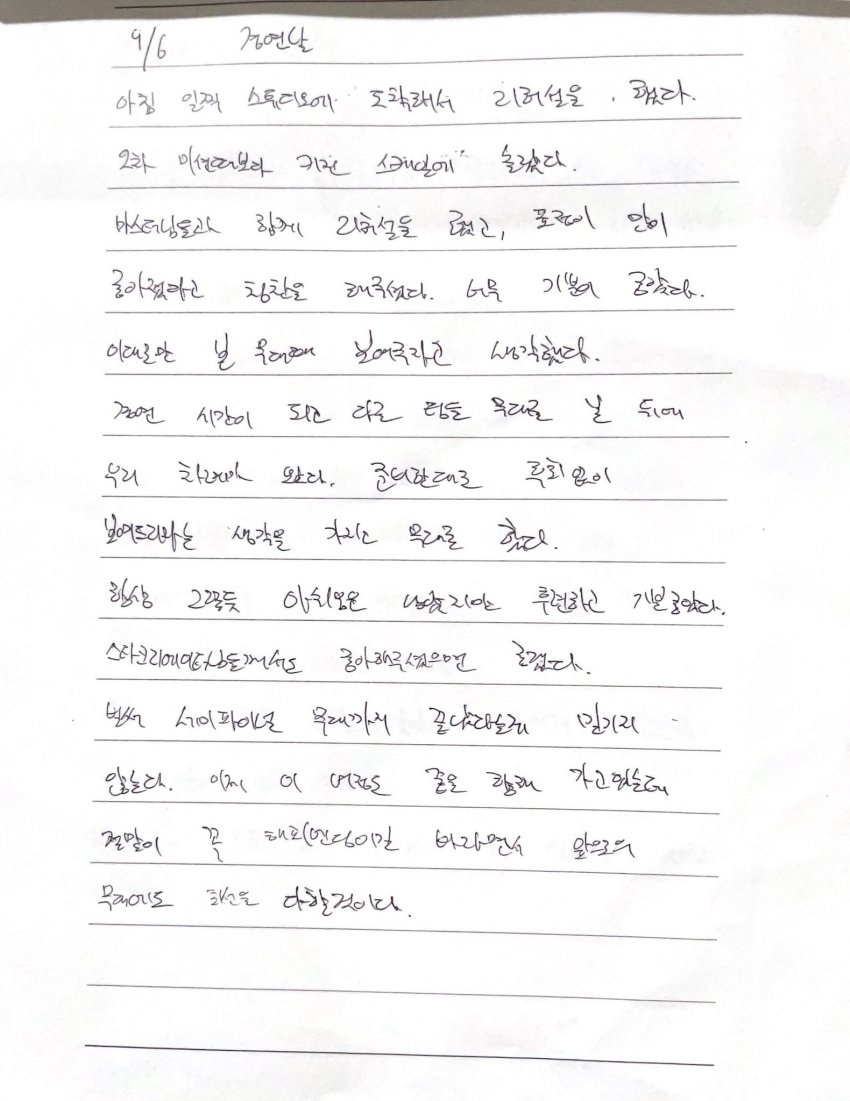 9/6 경연날
아침 일찍 스튜디오에 도착해서 리허설을 했다.
2차 미션때보다 커진 스케일에 놀랐다.
마스터님들과 함께 리허설을 했고, 표정이 많이
좋아졌다고 칭찬을 해주셨다. 너무 기분이 좋았다.
이대로만 본 무대때 보여주자고 생각했다.
경연 시간이 되고 다른 팀들 무대를 본 뒤에
우리 차례가 왔다. 준비한대로 후회없이
보여드리자는 생각을 가지고 무대를 했다.
항상 그렇듯 아쉬움은 남았지만 후련하고 기분 좋았다.
스타크리에이터님들께서도 좋아해주셨으면 좋겠다.
벌써 세미파이널 무대까지 끝났다는게 믿기지
않는다. 이제 이 여정도 끝을 향해 가고 있는데
결말이 꼭 해피엔딩이길 바라면서 앞으로의
무대에도 최선을 다할것이다.